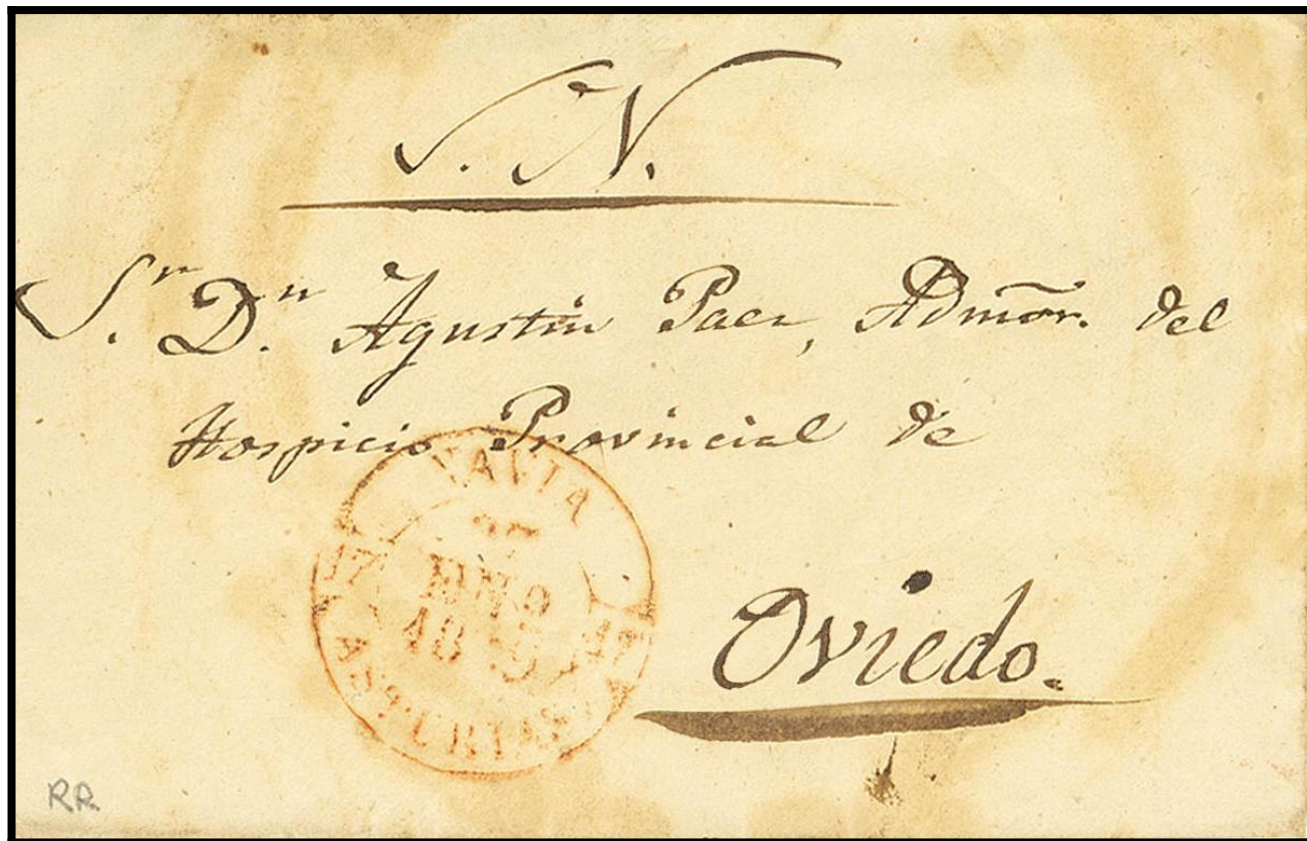 S. N.
Sr. Dn. Agustin Paez, Admōr. del
Hospicio Provincial de
Oviedo.
NAVIA
27
ENº
17
ASTURIAS
RR.